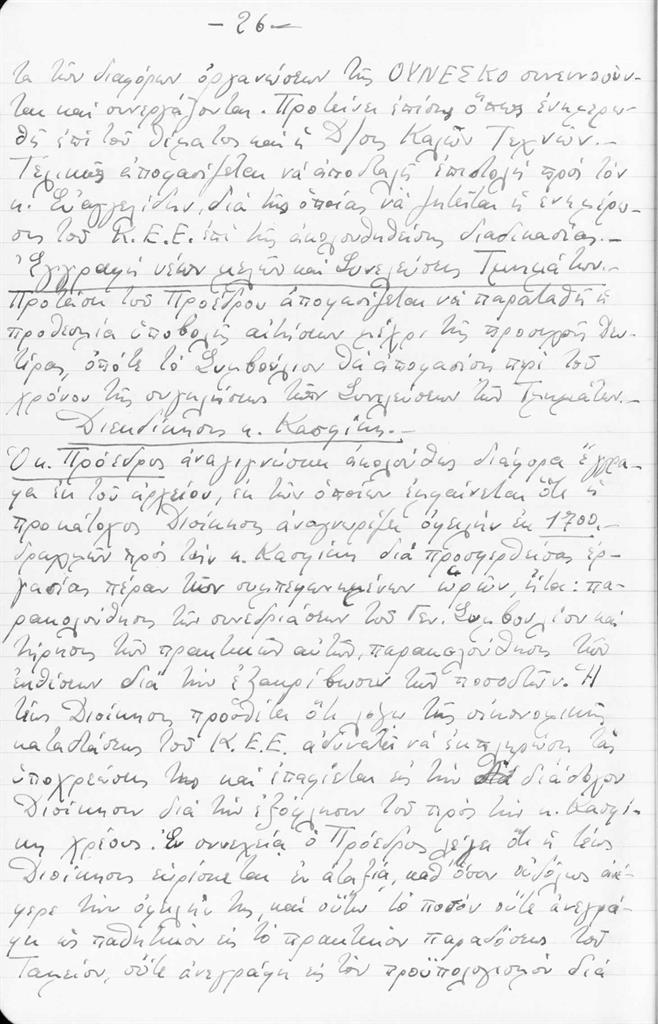 -26-
τα τῶν διαφόρων ὀργανώσεων τῆς ΟΥΝΕΣΚΟ συνεννοοῦν-
ται καὶ συνεργάζονται. Προτείνει ἐπίσης ὅπως ἐνημερω-
θῇ ἐπὶ τοῦ θέματος καὶ ἡ Δ/σις Καλῶν Τεχνῶν.-
Τελικῶς ἀποφασίζεται νὰ ἀποσταλῇ ἐπιστολὴ πρὸς τὸν
κ. Εὐαγγελίδην, διὰ τῆς ὁποίας νὰ ζητεῖται ἡ ἐνημέρω-
σις τοῦ Κ.Ε.Ε. ἐπὶ τῆς ἀκολουθηθείσης διαδικασίας.-
Ἐγγραφὴ νέων μελῶν καὶ Συνελεύσεις Τμημάτων.-
Προτάσει τοῦ Προέδρου ἀποφασίζεται νὰ παραταθῇ ἡ
προθεσμία ὑποβολῆς αἰτήσεων μέχρι τῆς προσεχοῦς Δευ-
τέρας, ὁπότε τὸ Συμβούλιον θὰ ἀποφασίσῃ περὶ τοῦ
χρόνου τῆς συγκλήσεως τῶν Συνελεύσεων τῶν Τμημάτων.-
Διεκδίκησις κ. Κασφίκη.-
Ὁ κ. Πρόεδρος ἀναγιγνώσκει ἀκολούθως διάφορα ἔγγρα-
φα ἐκ τοῦ ἀρχείου, ἐκ τῶν ὁποίων ἐμφαίνεται ὅτι ἡ
προκάτοχος Διοίκησις ἀναγνωρίζει ὀφειλὴν ἐκ 1700.-
δραχμῶν πρὸς τὴν κ. Κασφίκη διὰ προσφερθείσας ἐρ-
γασίας πέραν τῶν συμπεφωνημένων ὡρῶν, ἤτοι: πα-
ρακολούθησις τῶν συνεδριάσεων τοῦ Γεν. Συμβουλίου καὶ
τήρησις τῶν πρακτικῶν αὐτῶν, παρακολούθησις τῶν
ἐκθέσεων διὰ τὴν ἐξακρίβωσιν τῶν ποσοστῶν. Ἡ
τέως Διοίκησις προσθέτει ὅτι λόγῳ τῆς οἰκονομικῆς
καταστάσεως τοῦ Κ.Ε.Ε. ἀδυνατεῖ νὰ ἐκπληρώσῃ τὰς
ὑποχρεώσεις της καὶ ἐπαφίεται εἰς τὴν διάδοχον
Διοίκησιν διὰ τὴν ἐξόφλησιν τοῦ πρὸς τὴν κ. Κασφί-
κη χρέους. Ἐν συνεχείᾳ ὁ Πρόεδρος λέγει ὅτι ἡ τέως
Διοίκησις εὑρίσκεται ἐν ἀταξίᾳ, καθ' ὅσον οὐδόλως ἀνέ-
φερε τὴν ὀφειλήν της, καὶ οὔτε τὸ ποσὸν οὔτε ἀνεγρά-
φη ὡς παθητικὸν εἰς τὸ πρακτικὸν παραδόσεως τοῦ
Ταμείου, οὔτε ἀνεγράφη εἰς τὸν προϋπολογισμὸν διὰ